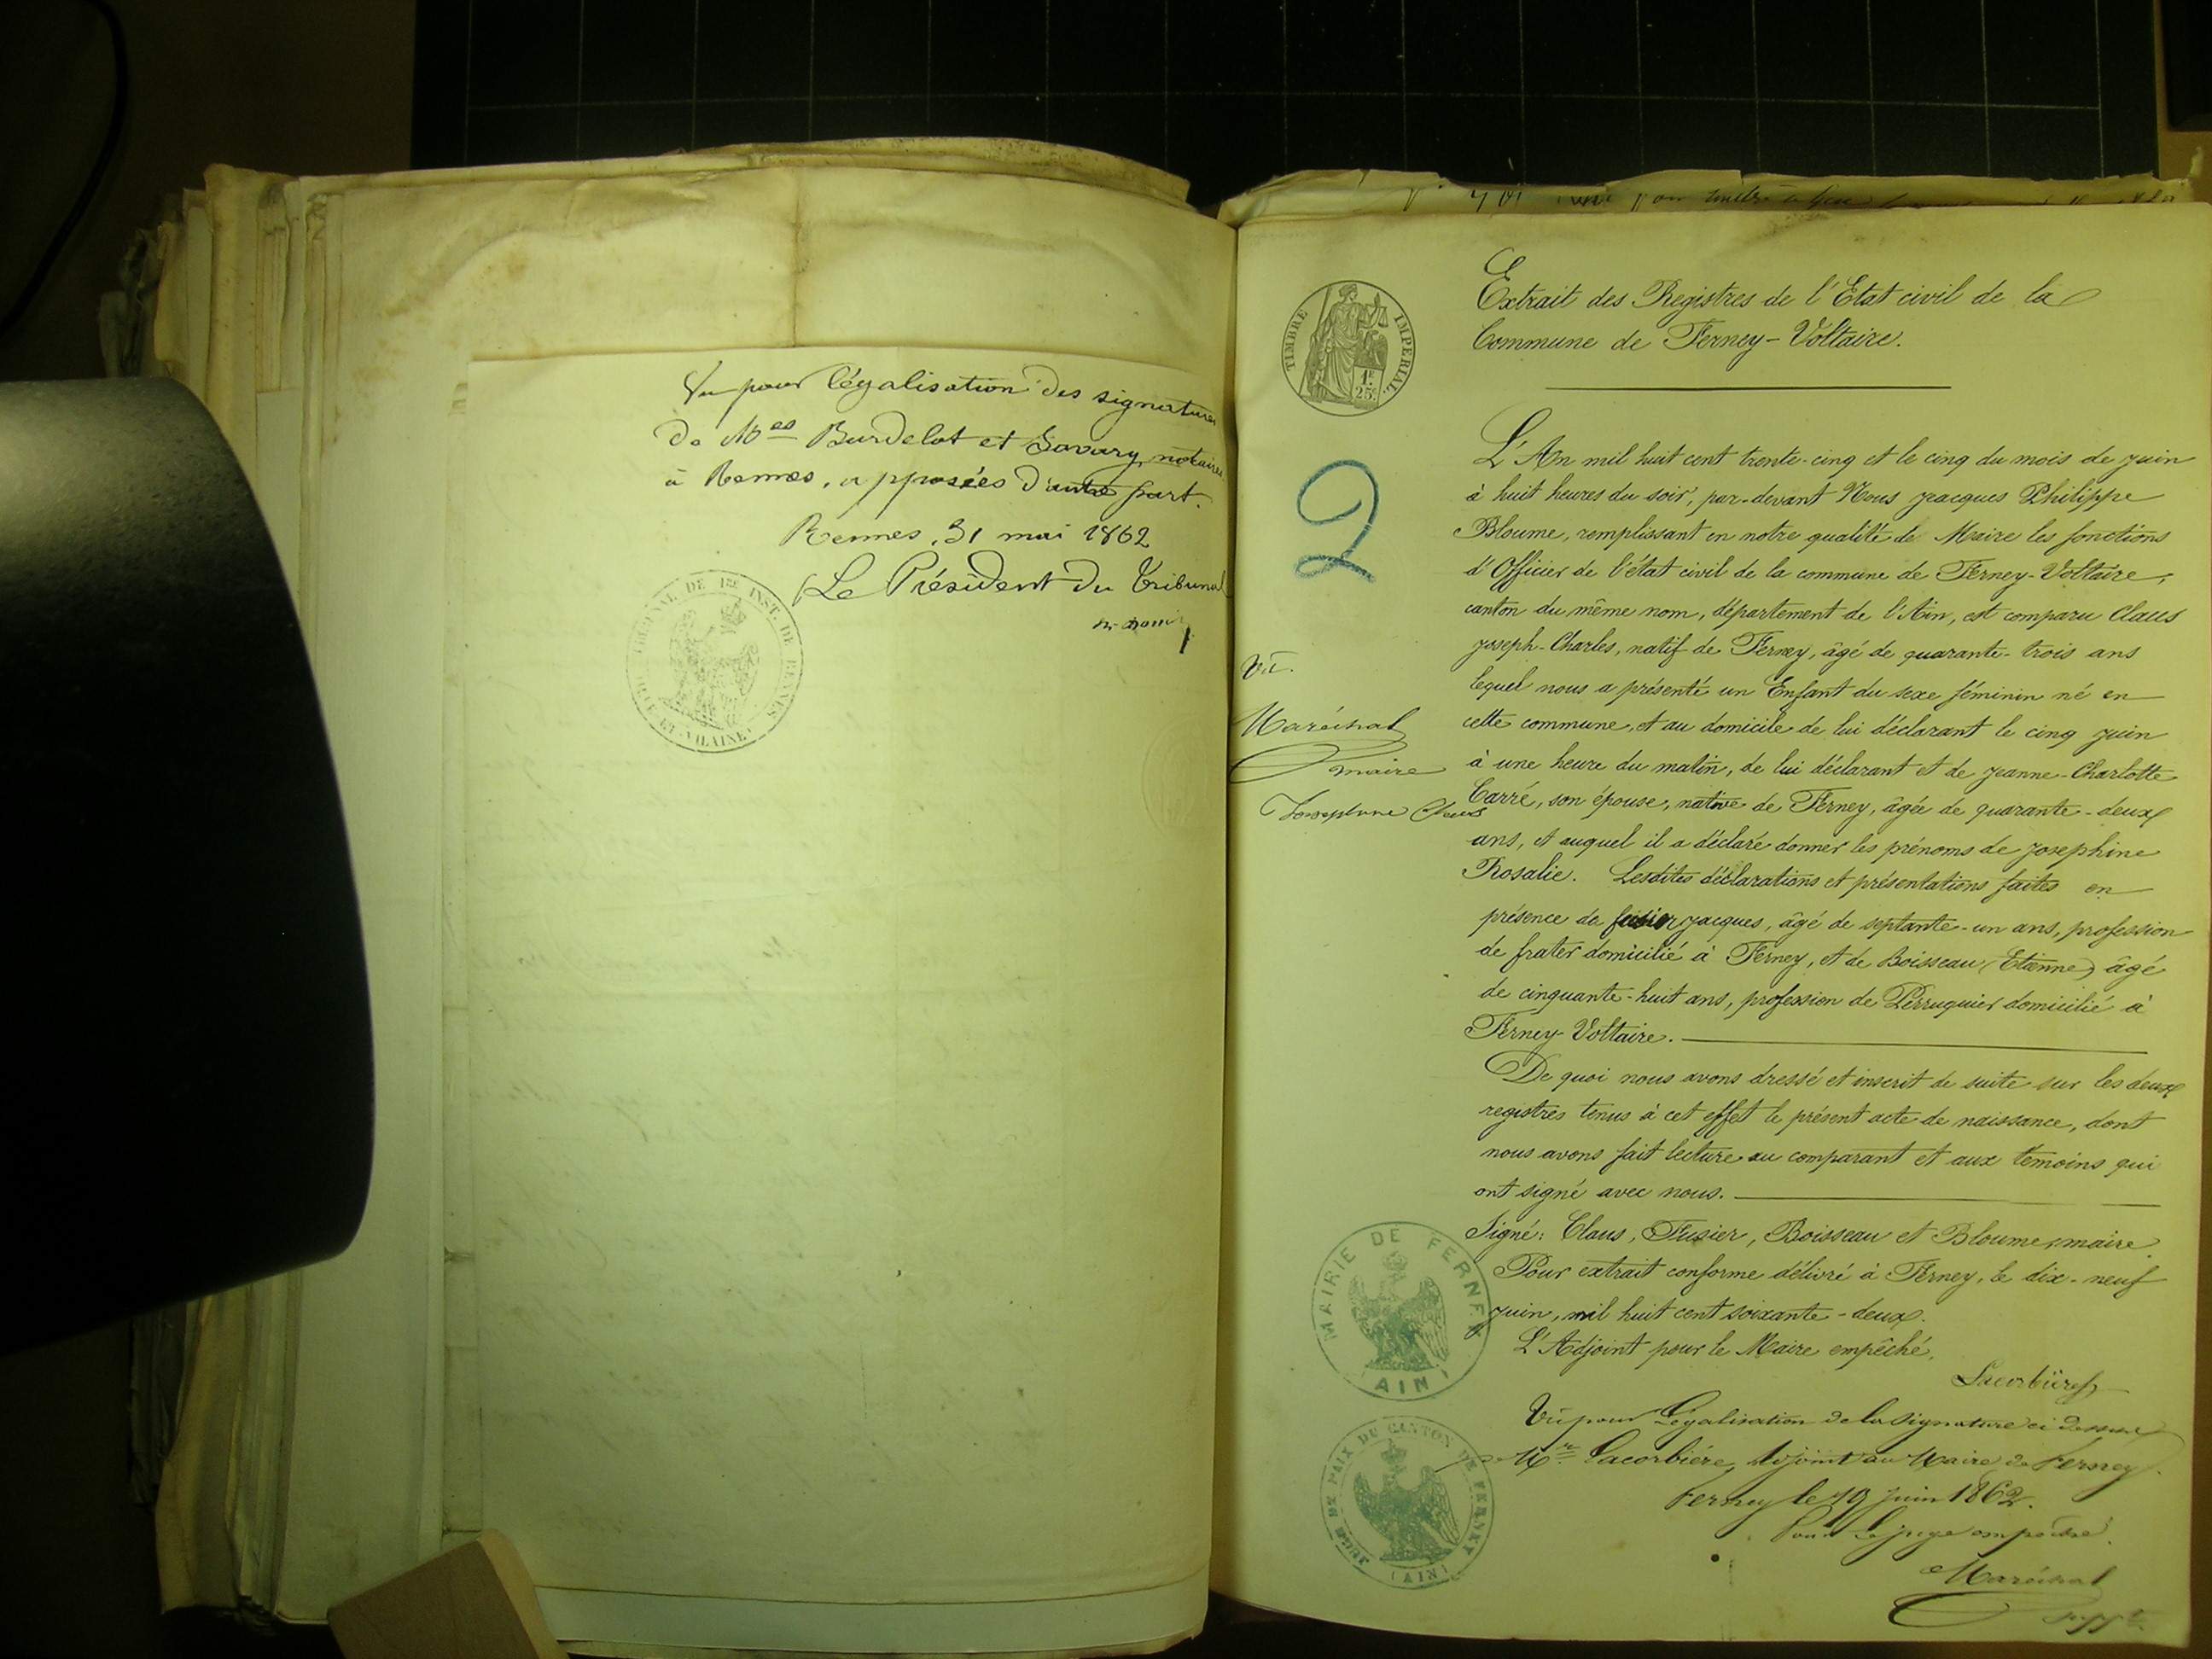 Vu pour légalisation des signatures
de Mes Burdelot et Savary, notaires
à Rennes, apposées d'autre part.
Rennes, 31 mai 1862
Le Président du Tribunal
TRIBUNAL DE 1RE INST. DE RENNES
ILLE-ET-VILAINE
Extrait des Registres de l'Etat civil de la
Commune de Ferney-Voltaire.
TIMBRE IMPERIAL
1F 25C
2
L'An mil huit cent trente-cinq et le cinq du mois de juin
à huit heures du soir, par-devant Nous Jacques Philippe
Bloume, remplissant en notre qualité de Maire les fonctions
d'Officier de l'état civil de la commune de Ferney-Voltaire,
canton du même nom, département de l'Ain, est comparu Claus
Joseph-Charles, natif de Ferney, âgé de quarante-trois ans
lequel nous a présenté un Enfant du sexe féminin né en
cette commune, et au domicile de lui déclarant le cinq juin
à une heure du matin, de lui déclarant et de Jeanne-Charlotte
Carré, son épouse, native de Ferney, âgée de quarante-deux
ans, et auquel il a déclaré donner les prénoms de Josephine
Rosalie. Lesdites déclarations et présentations faites en
présence de fusier Jacques, âgé de septante-un ans, profession
de frater domicilié à Ferney, et de Boisseau (Etienne) âgé
de cinquante-huit ans, profession de Perruquier domicilié à
Ferney-Voltaire.
De quoi nous avons dressé et inscrit de suite sur les deux
registres tenus à cet effet le présent acte de naissance, dont
nous avons fait lecture au comparant et aux témoins qui
ont signé avec nous.
Signé: Claus, Fusier, Boisseau et Bloume, maire.
Pour extrait conforme délivré à Ferney, le dix-neuf
juin, mil huit cent soixante-deux.
L'Adjoint pour le Maire empêché,
Lacorbière
Vu pour Légalisation de la signature ci dessus
de Mr. Lacorbière, Adjoint au Maire de Ferney.
Ferney le 19 juin 1862.
Pour le juge empêché.
Maréchal
supt.
Vu.
Maréchal
maire
Josephine Claus
MAIRIE DE FERNEY
(AIN)
JUGE DE PAIX DU CANTON DE FERNEY
(AIN)